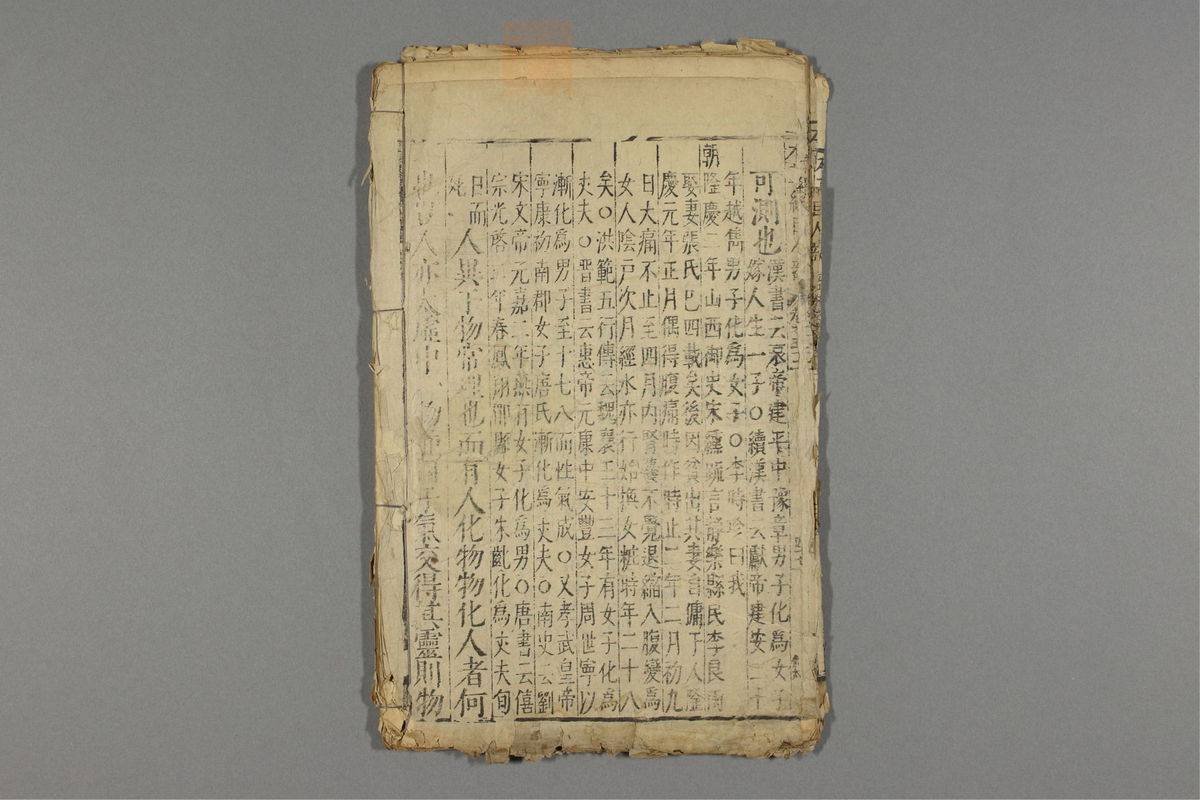 可測也漢書云哀帝建平中豫章男子化為女子
嫁人生一子○續漢書云獻帝建安二十
年越雋男子化為女子○李時珍曰我
朝隆慶二年山西御史宋纁疏言靜樂縣民李良雨
娶妻張氏巳四載矣後因貧出其妻自傭于人隆
慶元年正月偶得腹痛時作時止二年二月初九
日大痛不止至四月內腎囊不覺退縮入腹變為
女人陰戶次月經水亦行始換女粧時年二十八
矣○洪範五行傳云魏襄王十三年有女子化為
丈夫○晋書云惠帝元康中安豐女子周世寧以
漸化為男子至十七八而性氣成○又孝武皇帝
寧康初南郡女子唐氏漸化為丈夫○南史云劉
宋文帝元嘉二年燕有女子化為男○唐書云僖
宗光啓二年春鳳翔郿縣女子朱齔化為丈夫旬
日而
死
人異于物常理也而有人化物物化人者何
人亦太虛中一物
氣交得其靈則物